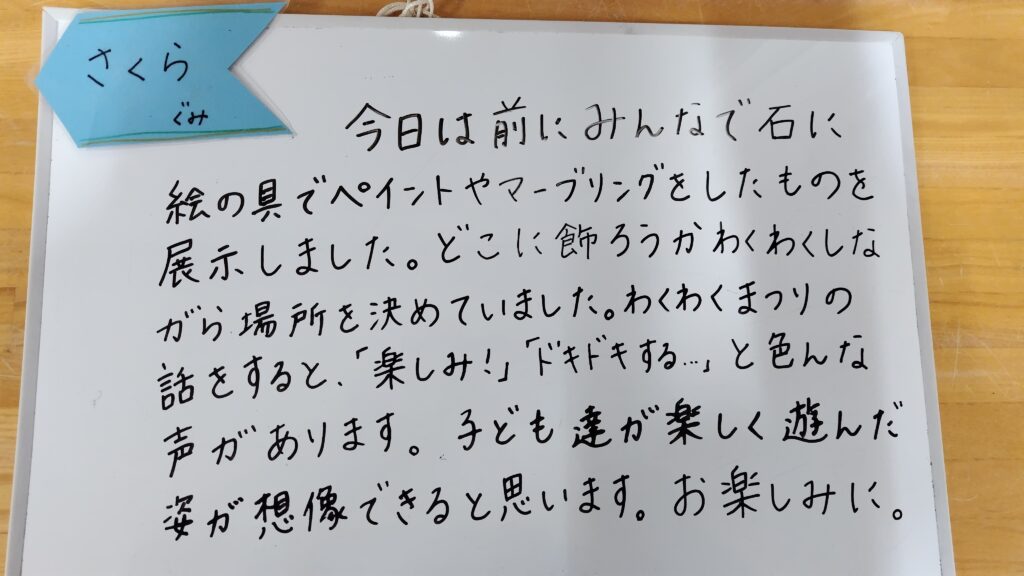 さくら
ぐみ
今日は前にみんなで石に
絵の具でペイントやマーブリングをしたものを
展示しました。どこに飾ろうかわくわくしな
がら場所を決めていました。わくわくまつりの
話をすると、「楽しみ!」「ドキドキする…」と色んな
声があります。子ども達が楽しく遊んだ
姿が想像できると思います。お楽しみに。